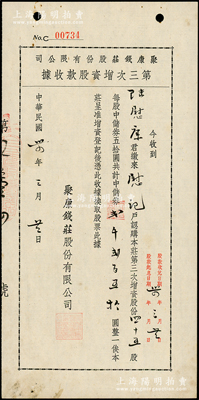 No.C 00734
聚康錢莊股份有限公司
第三次增資股款收據
今收到
慰 君繳來慰記戶認購本莊第三次增資股份四十五股
每股中儲券五拾圓共計中儲券貳千貳百五拾圓整一俟本
莊呈准增資登記後憑此收據換取股票此據
聚康錢莊股份有限公司
中華民國 年三月 日
上海陽明拍賣